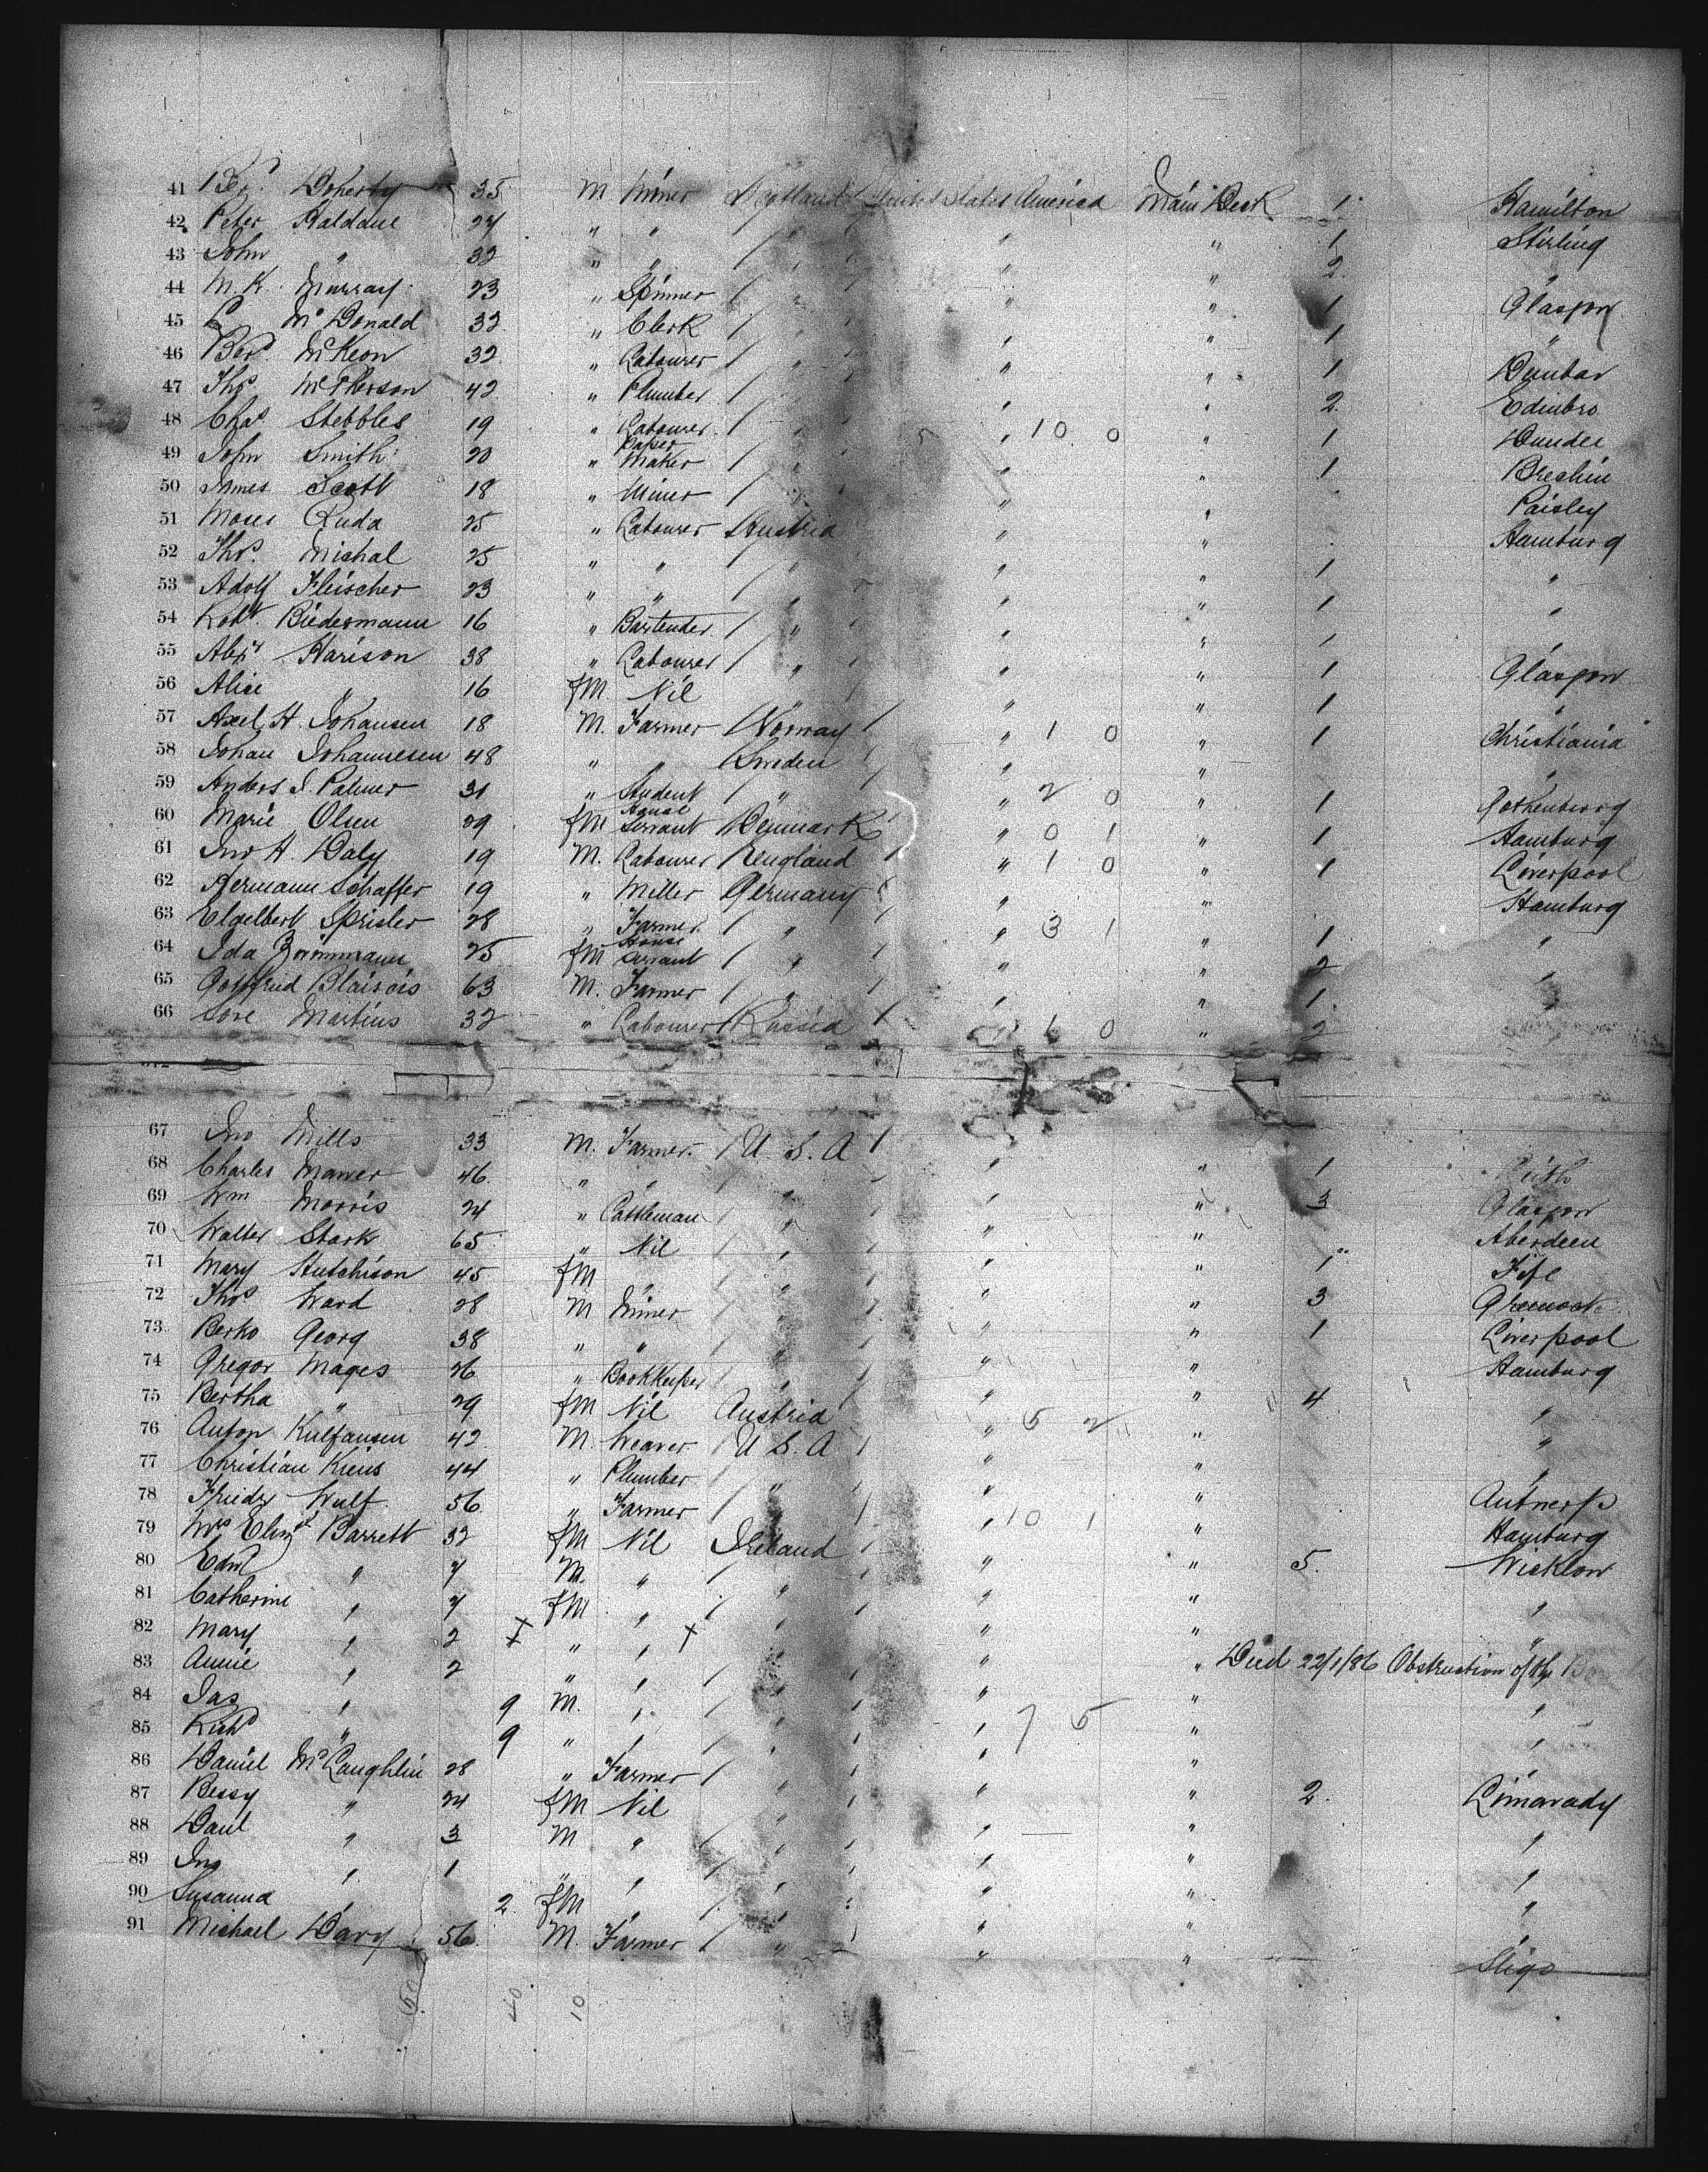 41 Berd Doherty 35 M Miner Scotland United States America Main Deck 1 Hamilton
42 Peter Haldane 24 " " / " " " 1 Stirling
43 John " 32 " " / " " " 2 "
44 M. K. Murray 23 " Spinner / " " " 1 Glasgow
45 Mc Donald 32 " Clerk / " " " 1 "
46 Berd McKeon 32 " Labourer / " " " 1 Dunbar
47 Thos McPherson 42 " Plumber / " " " 2 Edinbro
48 Chas Stebbles 19 " Labourer / " " 10 0 " 1 Dundee
49 John Smith 20 " Paper Maker / " " " 1 Brechin
50 James Scott 18 " Miner / " " " Paisley
51 Moses Ruda 25 " Labourer Austria " " Hamburg
52 Thos Mishal 25 " " / " " " 1 "
53 Adolf Fleischer 23 " " / " " " 1 "
54 Robt. Biedermann 16 " Bartender / " " " 1
55 Alexr Harison 38 " Labourer / " " " 1 Glasgow
56 Alice " 16 fM. Nil " " " 1 "
57 Axel H. Johansen 18 M. Farmer Norway " 1 0 " 1 Christiania
58 Johan Johannesen 48 " " Sweden " " "
59 Anders J. Palmer 31 " Student / " " 2 0 " 1 Gothenborg
60 Marie Olsen 29 fM House Servant Denmark " 0 1 " 1 Hamburg
61 Jno H. Daly 19 M. Labourer England " 1 0 " 1 Liverpool
62 Hermann Schaffer 19 " Miller Germany " " Hamburg
63 Elgelbert Sprisler 28 " Farmer / " " 3 1 " 1 "
64 Ida Zimmmann 25 fM House Servant / " " " 2 "
65 Gottfried Blaisois 63 M. Farmer / " " " 1 "
66 Sore Martins 32 " Labourer Russia 1 0 " 2
67 Jno Mills 33 M. Farmer / U. S. A " " 1 Leith
68 Charles Mawer 46 " " " " " 3 Glasgow
69 Wm Morris 24 " Cattleman " " " Aberdeen
70 Walter Stark 65 " Nil / " " " 1 Fife
71 Mary Hutchison 45 fM " / " " " 3 Greenock
72 Thos Ward 28 M Miner / " " " 1 Liverpool
73 Berko Georg 38 " " / " " " Hamburg
74 Gregor Mages 26 " Bookkeeper / " " " 4 "
75 Bertha " 29 fM Nil Austria " 5 2 " "
76 Anton Kulfansen 42 M. Weaver / U. S. A " " "
77 Christian Kiens 44 " Plumber / " " " Antwerp
78 Friedr Wulf 56 " Farmer / " 10 1 " Hamburg
79 Mrs Elizth Barrett 32 fM Nil Ireland " " 5. Wicklow
80 Edmd " 7 M. " / " " " "
81 Catherine " 7 fM " / " " " "
82 Mary " 2 " " / " " " Died 22/1/86 Obstruction of the
83 Annie " 2 " " / " " " "
84 Jas " 9 M. " / " " 7 5 " "
85 Richd " 9 " " / " " " "
86 Daniel McLaughlin 28 " Farmer / " " " 2. Limavady
87 Bessy " 24 fM Nil " " " "
88 Danl " 3 M " / " " " "
89 Jno " 1 " " / " " " "
90 Susanna " 2 fM " / " " "
91 Michael Davy 56. M. Farmer / " " " Sligo
50 40 10